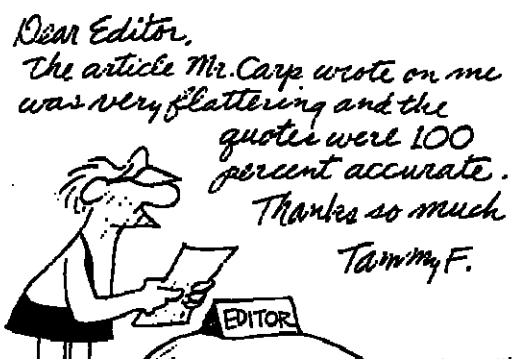 Dear Editor,
The article Mr. Carp wrote on me
was very flattering and the
quotes were 100
percent accurate.
Thanks so much
Tammy F.
EDITOR